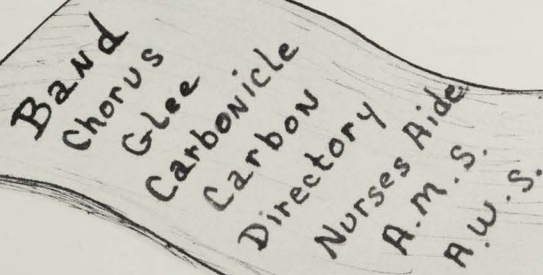 Band
Chorus
Glee
Carbonicle
Carbon
Directory
Nurses Aide
A.M.S.
A.W.S.